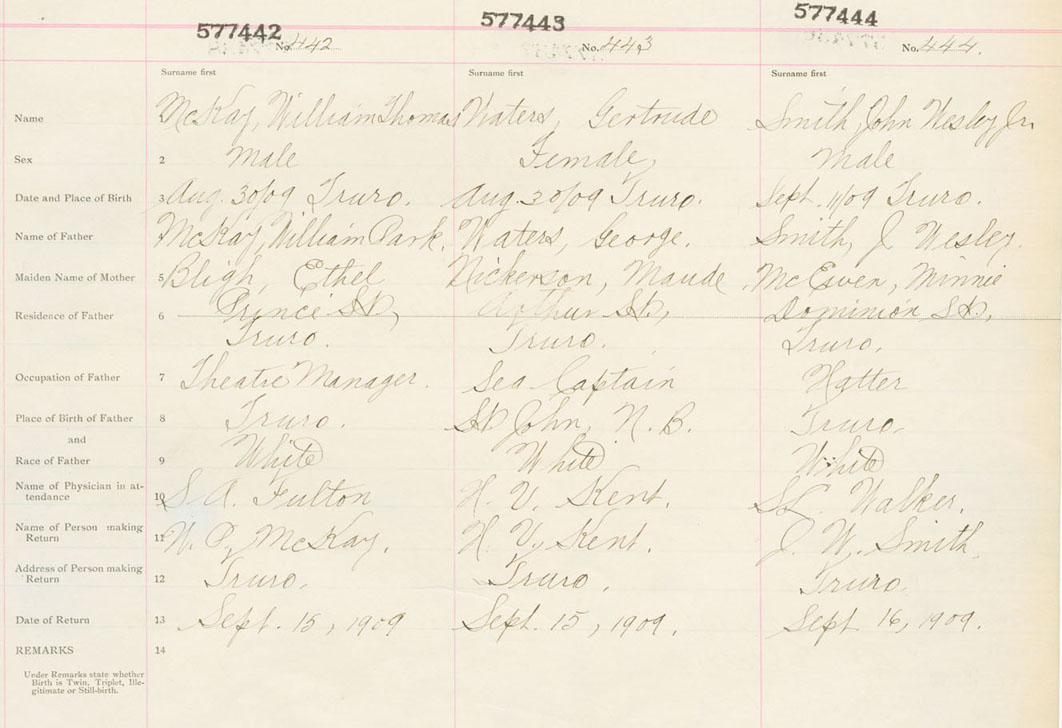 577442 577443 577444
No. 442 No. 443 No. 444.
Surname first Surname first Surname first
Name McKay, William Thomas Waters, Gertrude Smith, John Wesley Jr.
Sex 2 Male Female, Male
Date and Place of Birth 3 Aug. 30/09 Truro. Aug. 30/09 Truro. Sept. 1/09 Truro.
Name of Father McKay, William Park. Waters, George. Smith, J Wesley.
Maiden Name of Mother 5 Bligh, Ethel Nickerson, Maude. McEwen, Minnie
Residence of Father 6 Prince St., Arthur St., Dominion St.,
Truro. Truro. Truro.
Occupation of Father 7 Theatre Manager. Sea Captain Hatter
Place of Birth of Father 8 Truro. St John, N. B. Truro.
and
Race of Father 9 White White White
Name of Physician in at-
tendence 10 S. A. Fulton H. V. Kent. Walker.
Name of Person making
Return 11 W. P. McKay. H. V. Kent. J. W. Smith
Address of Person making
Return 12 Truro. Truro. Truro.
Date of Return 13 Sept. 15, 1909 Sept. 15, 1909. Sept 16, 1909.
REMARKS 14
Under Remarks state whether
Birth is Twin, Triplet, Ille-
gitimate or Still-birth.